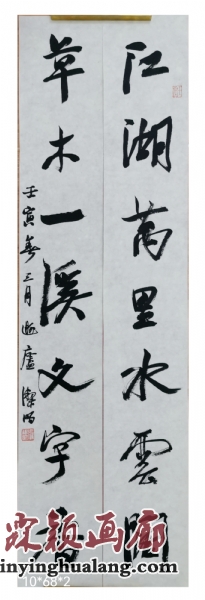 江湖萬里水雲闊
草木一溪文字香
壬寅春三月
霖颖画廊
inyinghualang.com
10*68*2